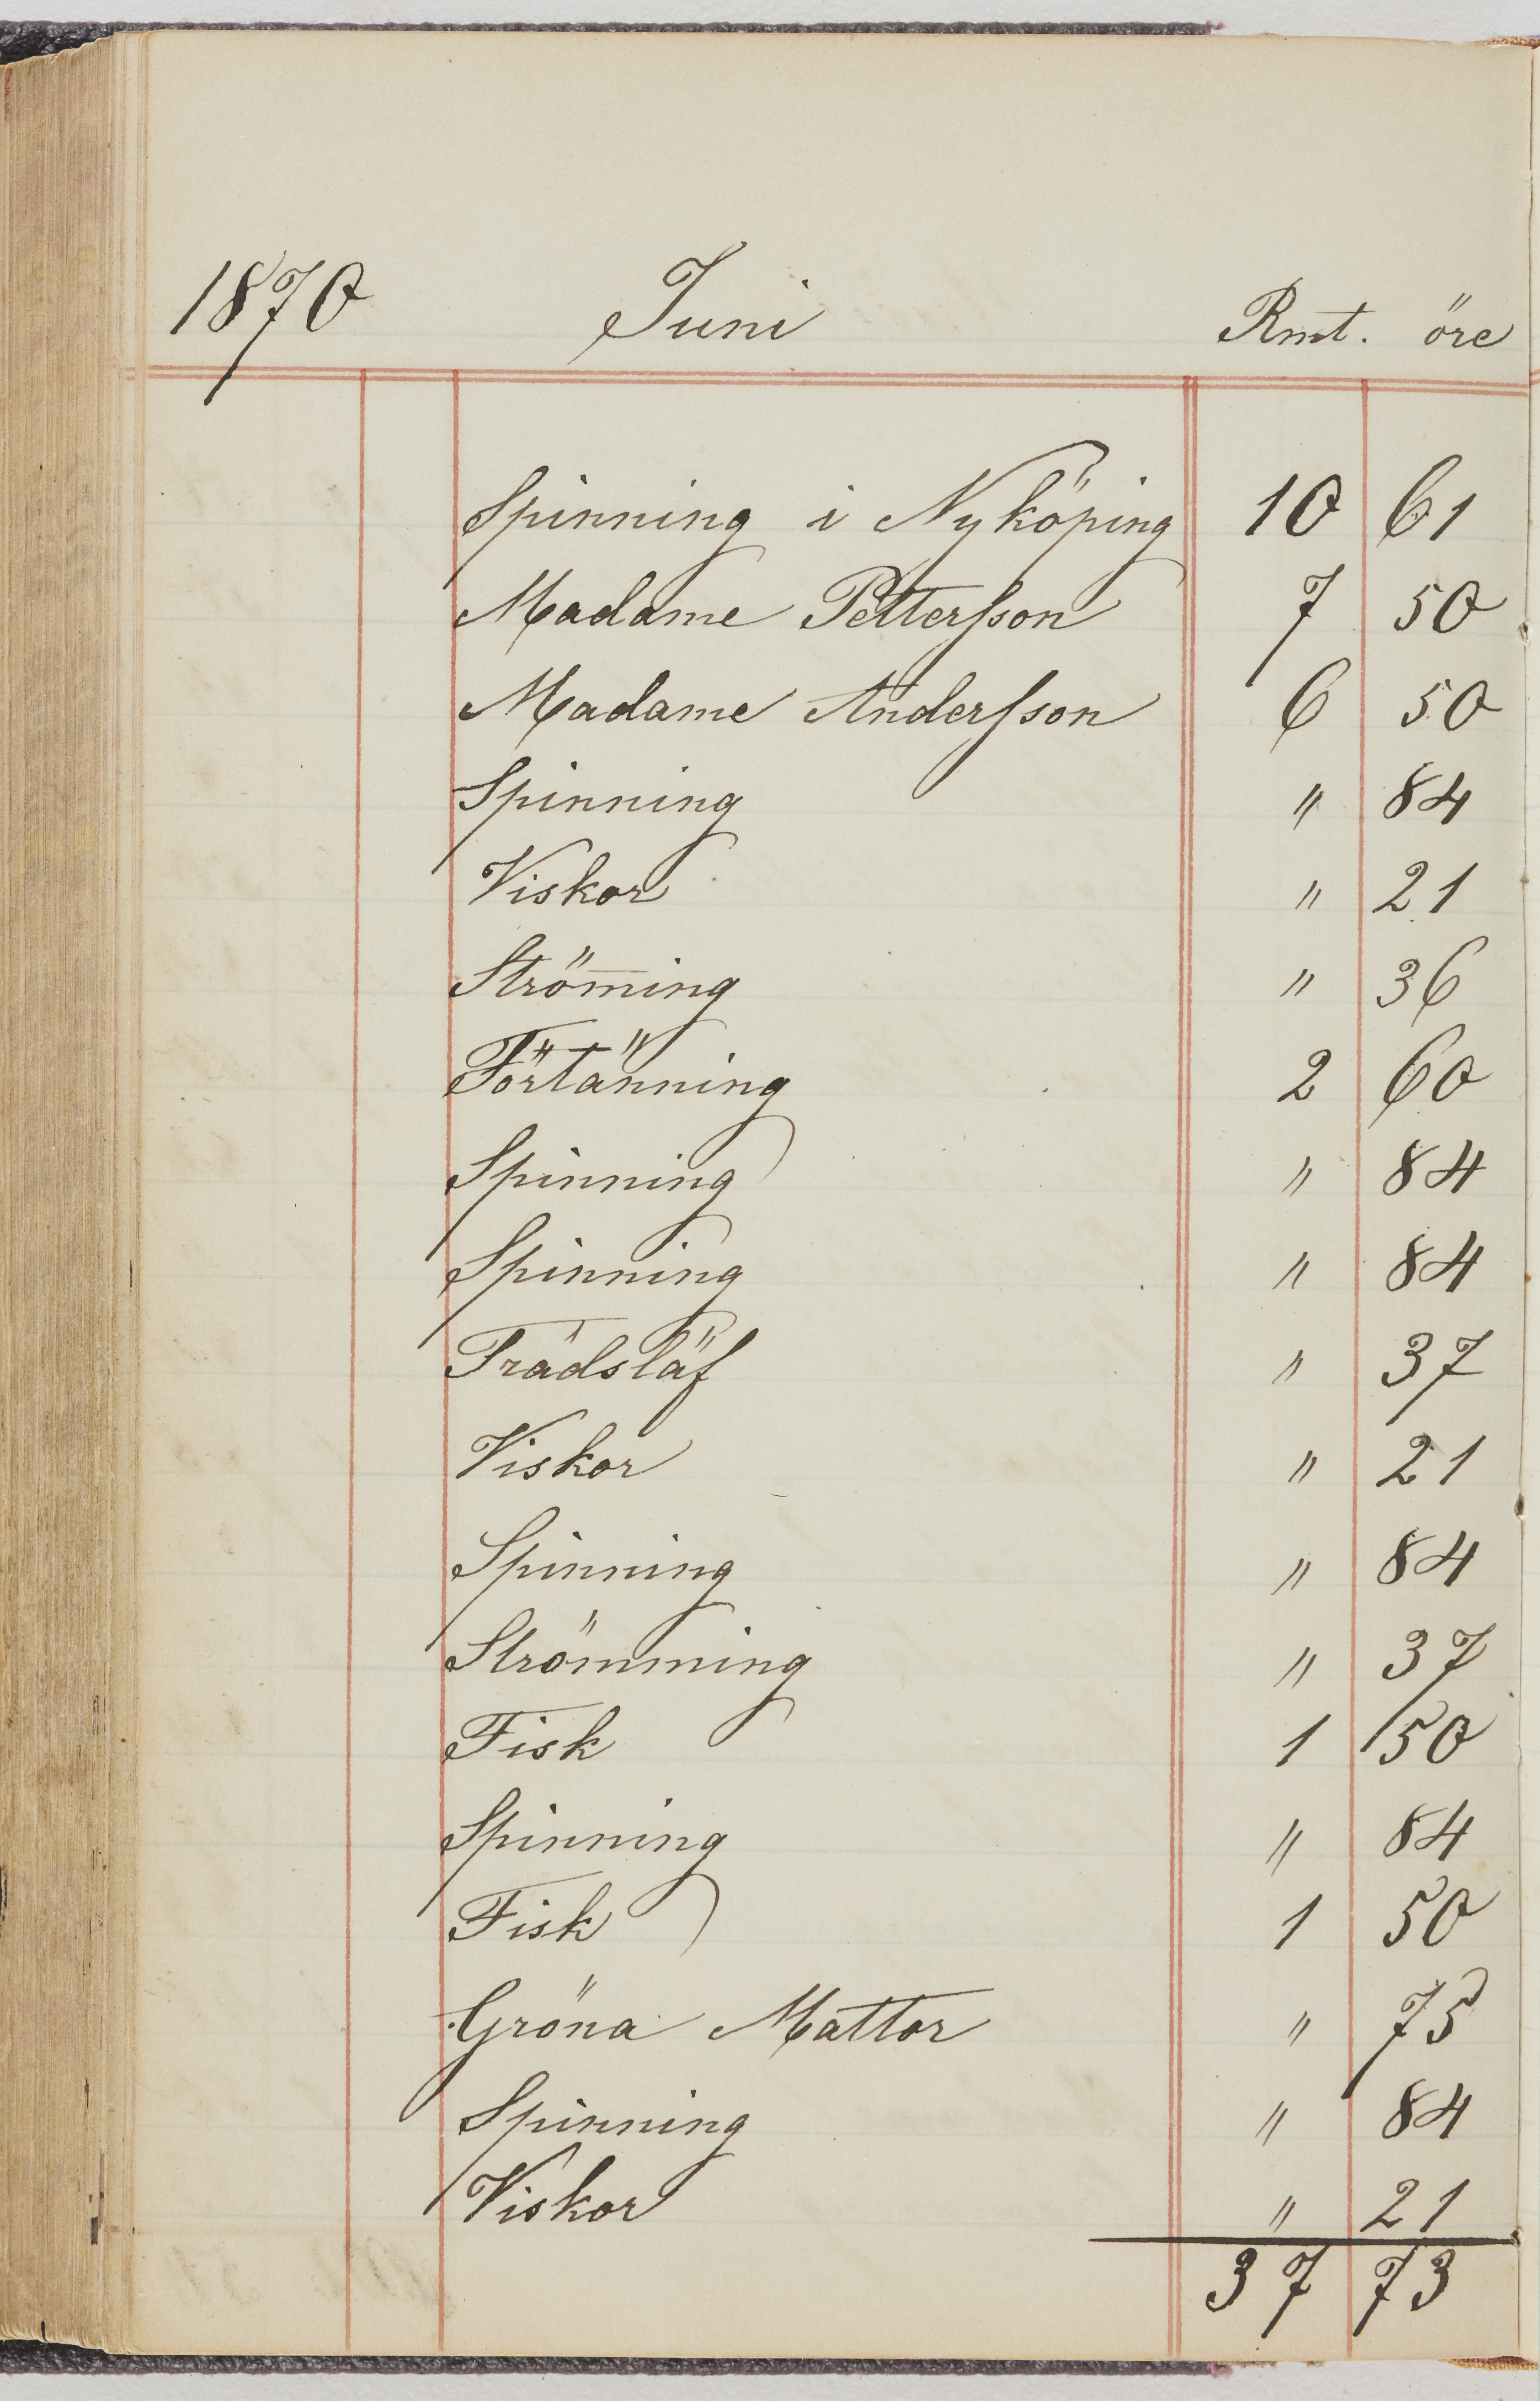 1870 Juni Rmt. öre
Spinning i Nyköping 10 61
Madame Pettersson 7 50
Madame Andersson 6 50
Spinning " 84
Viskor " 21
Ström̄ing " 36
Förtänning 2 60
Spinning " 84
Spinning " 84
Trädsläf " 37
Viskor " 21
Spinning " 84
Strömming " 37
Fisk 1 50
Spinning " 84
Fisk 1 50
Gröna Mattor " 75
Spinning " 84
Viskor " 21
37 73